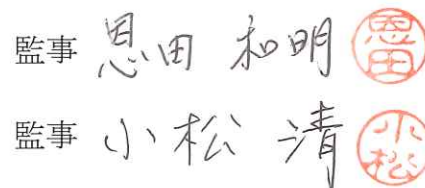 監事 恩田 和明 恩田
監事 小松 清 小松